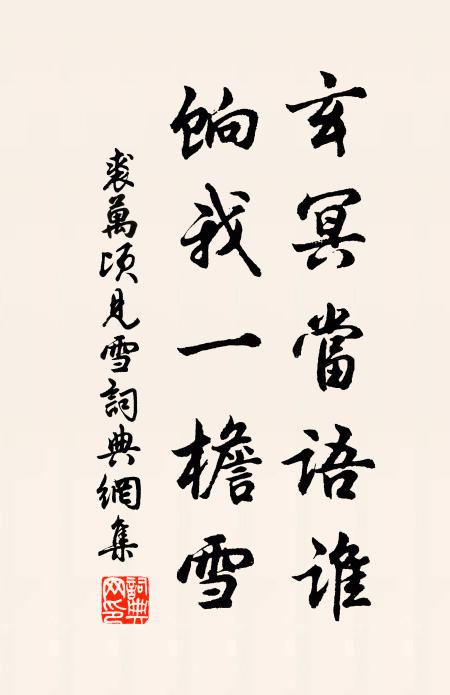 玄冥當語誰
餉我一檐雪
裘萬頃見雪詞典網集
詞典网印